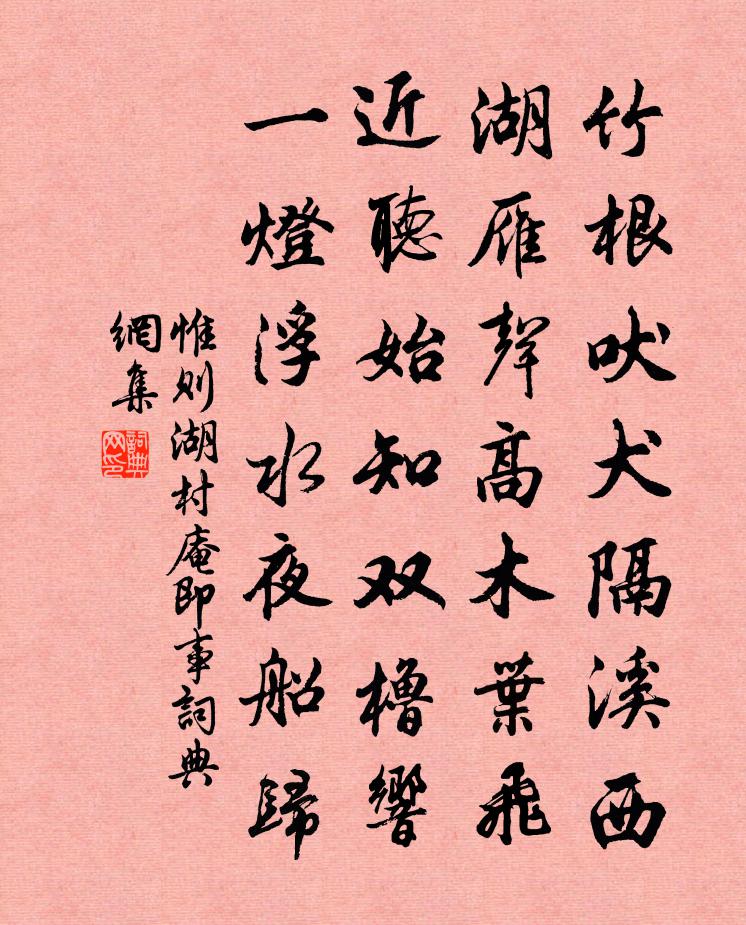 竹根吠犬隔溪西
湖雁聲高木葉飛
近聽始知双櫓響
一燈浮水夜船歸
惟则湖村庵即事詞典
網集
詞典
网印